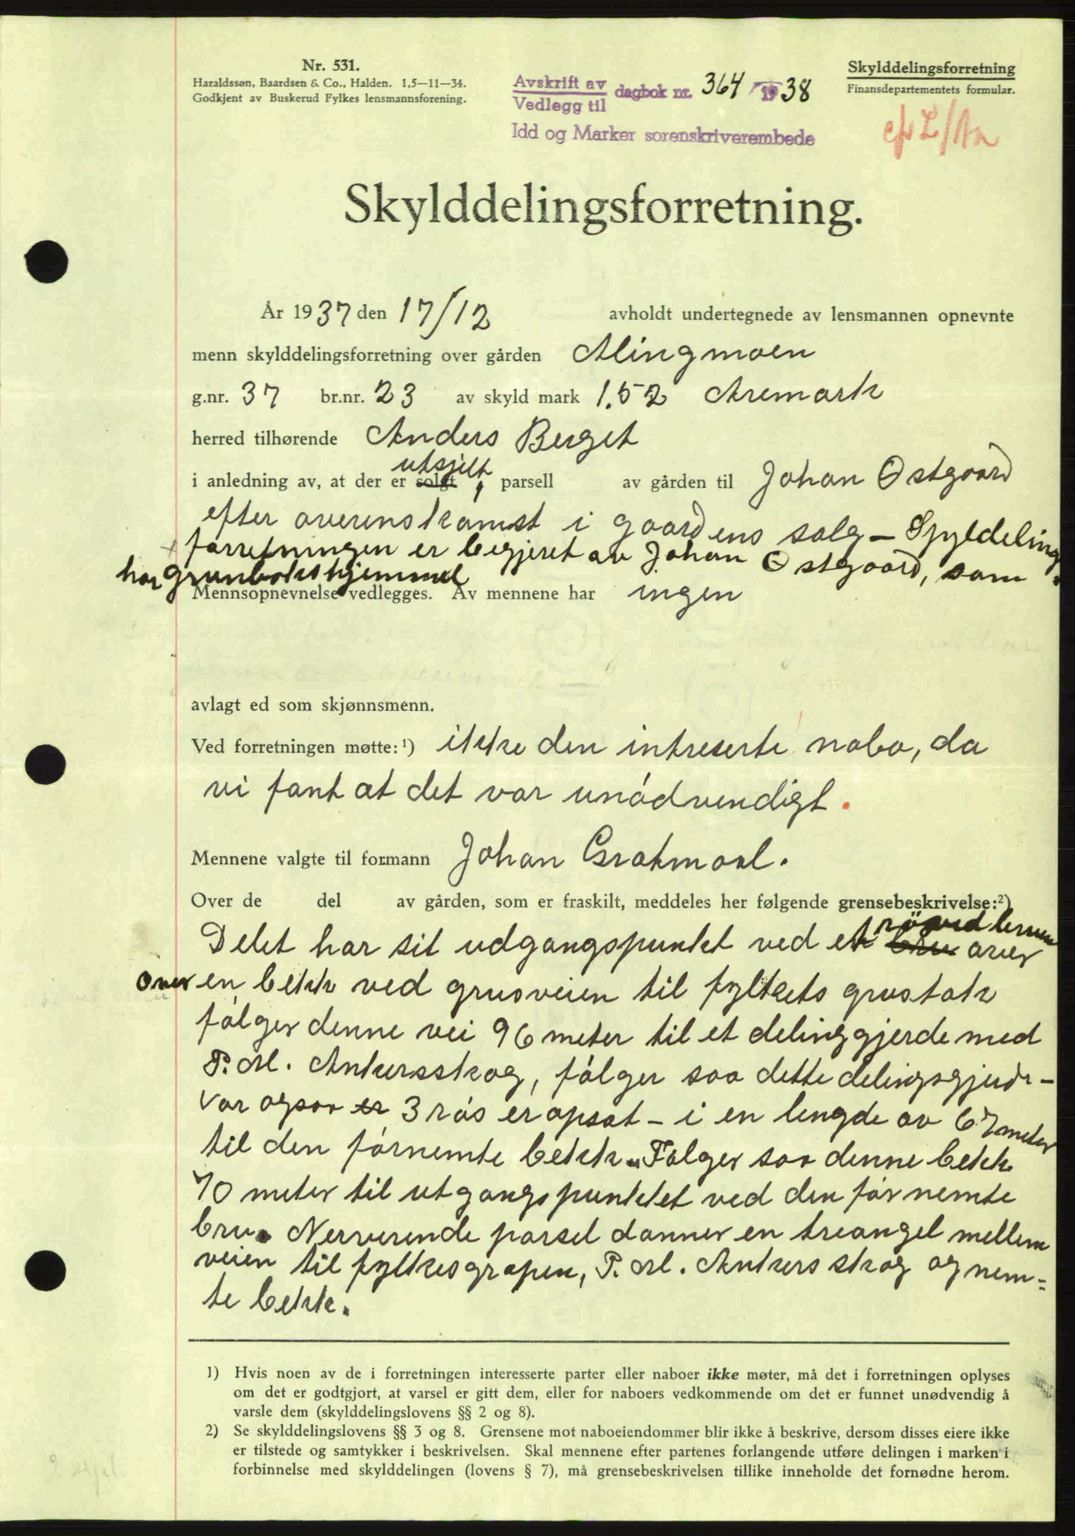 Nr. 531.
Haraldssøn, Baardsen & Co., Halden. 1,5—11—34.
Godkjent av Buskerud Fylkes lensmannsforening.
Avskrift av
Vedlegg til
dagbok nr. 364 / 1938
Idd og Marker sorenskriverembede
Skylddelingsforretning
Finansdepartementets formular.
Skylddelingsforretning.
År 1937 den 17/12 avholdt undertegnede av lensmannen opnevnte
menn skylddelingsforretning over gården Alingmoen
g.nr. 37 br.nr. 23 av skyld mark 1.52 Aremark
herred tilhørende Anders Berget
utsjilt
i anledning av, at der er solgt , parsell av gården til Johan Østgaard
efter overenskomst i gaardens salg — Sjyldeling
forretningen er begjeret av Johan Østgaard, som
har grunbokshjemmel.
Mennsopnevnelse vedlegges. Av mennene har ingen
avlagt ed som skjønnsmenn.
Ved forretningen møtte: ¹) ikke den intreserte nabo, da
vi fant at det var unødvendigt.
Mennene valgte til formann Johan Grakmoel.
Over de del av gården, som er fraskilt, meddeles her følgende grensebeskrivelse:²)
rös ved bruen
Delet har sit udgangspunktet ved et bru over
over en bekk ved grusveien til fylkets grustak
følger denne vei 96 meter til et delinggjerde med
P. M. Ankersskog, følger saa dette delingsgjerde —
var ogsaa er 3 røs er opsat — i en lengde av 67 meter
til den førnemte bekk. Følger saa denne bekk
70 meter til utgangspunktet ved den førnemte
bru. Nerverende parsel danner en treangel mellem
veien til fylkesgropen, P. M. Ankers skog og nem=
te bekk.
1) Hvis noen av de i forretningen interesserte parter eller naboer ikke møter, må det i forretningen oplyses
om det er godtgjort, at varsel er gitt dem, eller for naboers vedkommende om det er funnet unødvendig å
varsle dem (skylddelingslovens §§ 2 og 8).
2) Se skylddelingslovens §§ 3 og 8. Grensene mot naboeiendommer blir ikke å beskrive, dersom disses eiere ikke
er tilstede og samtykker i beskrivelsen. Skal mennene efter partenes forlangende utføre delingen i marken i
forbinnelse med skylddelingen (lovens § 7), må grensebeskrivelsen tillike inneholde det fornødne herom.